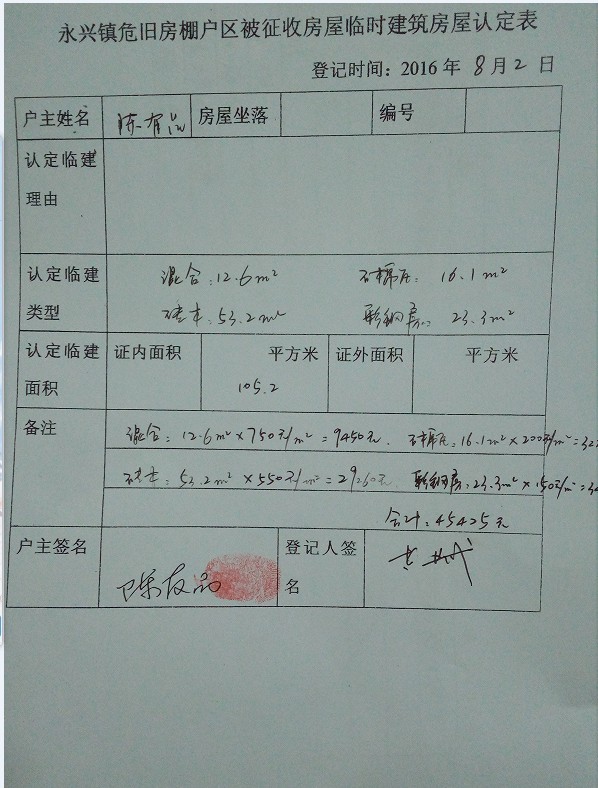 永兴镇危旧房棚户区被征收房屋临时建筑房屋认定表
登记时间：2016 年 8 月 2 日
户主姓名 陈有品 房屋坐落 编号
认定临建
理由
认定临建 混合：12.6m² 石棉瓦：16.1m²
类型 砖木：53.2m² 彩钢房：23.3m²
认定临建 证内面积 平方米 证外面积 平方米
面积 105.2
备注 混合：12.6m²×750元/m²=9450元 石棉瓦：16.1m²×200元/m²=32
砖木：53.2m²×550元/m²=29260元 彩钢房：23.3m²×150元/m²=3
合计：45425元
户主签名 陈友品 登记人签
名